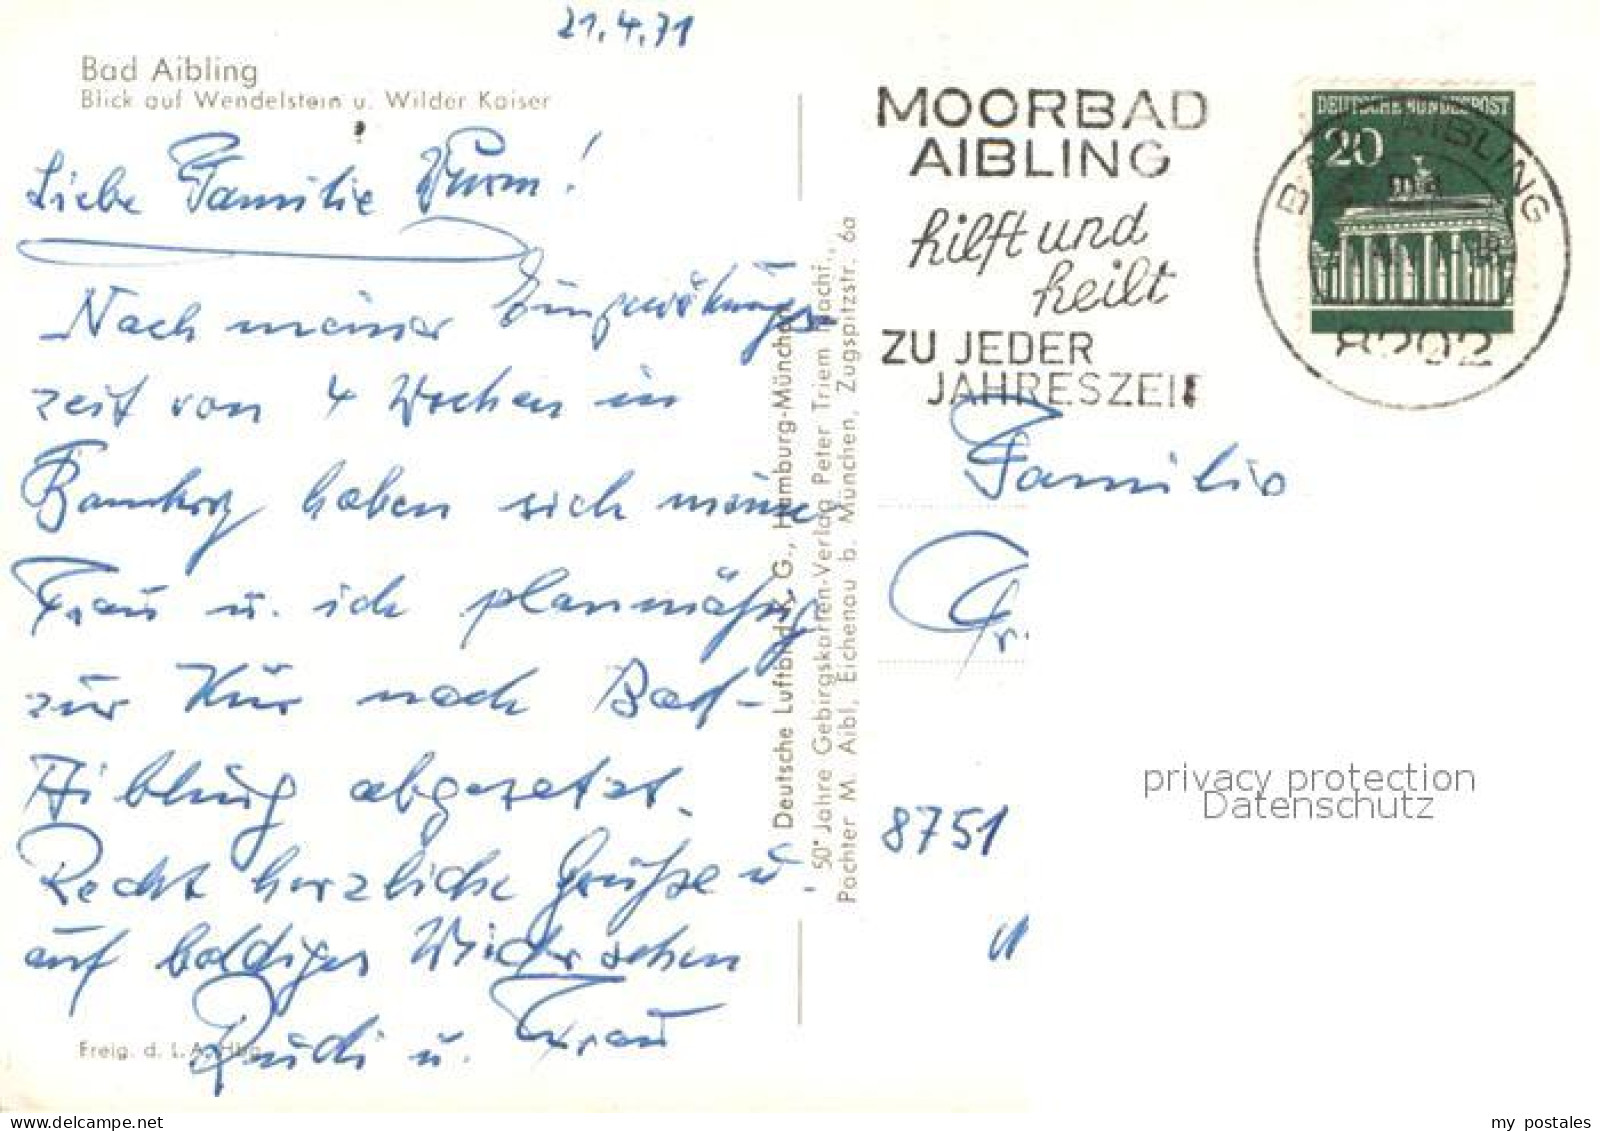 21.4.71
Bad Aibling
Blick auf Wendelstein u. Wilder Kaiser
Liebe Familie Wurm!
Nach meiner Eingewöhnungs-
zeit von 4 Wochen in
Bamberg haben sich meine
Frau u. ich planmäßig
zur Kur nach Bad-
Aibling abgesetzt.
Recht herzliche Grüße u.
auf baldiges Wiedersehen
Rudi u. Frau
Freig. d. L.A. Hbg.
Deutsche Luftbild K. G., Hamburg-München
50 Jahre Gebirgskarten-Verlag Peter Triem Nachf.,
Pächter M. Aibl, Eichenau b. München, Zugspitzstr. 6a
MOORBAD
AIBLING
hilft und
heilt
ZU JEDER
JAHRESZEIT
DEUTSCHE BUNDESPOST
20
BAD AIBLING
ma
8202
Familie
8751
privacy protection
Datenschutz
www.delcampe.net
my_postales